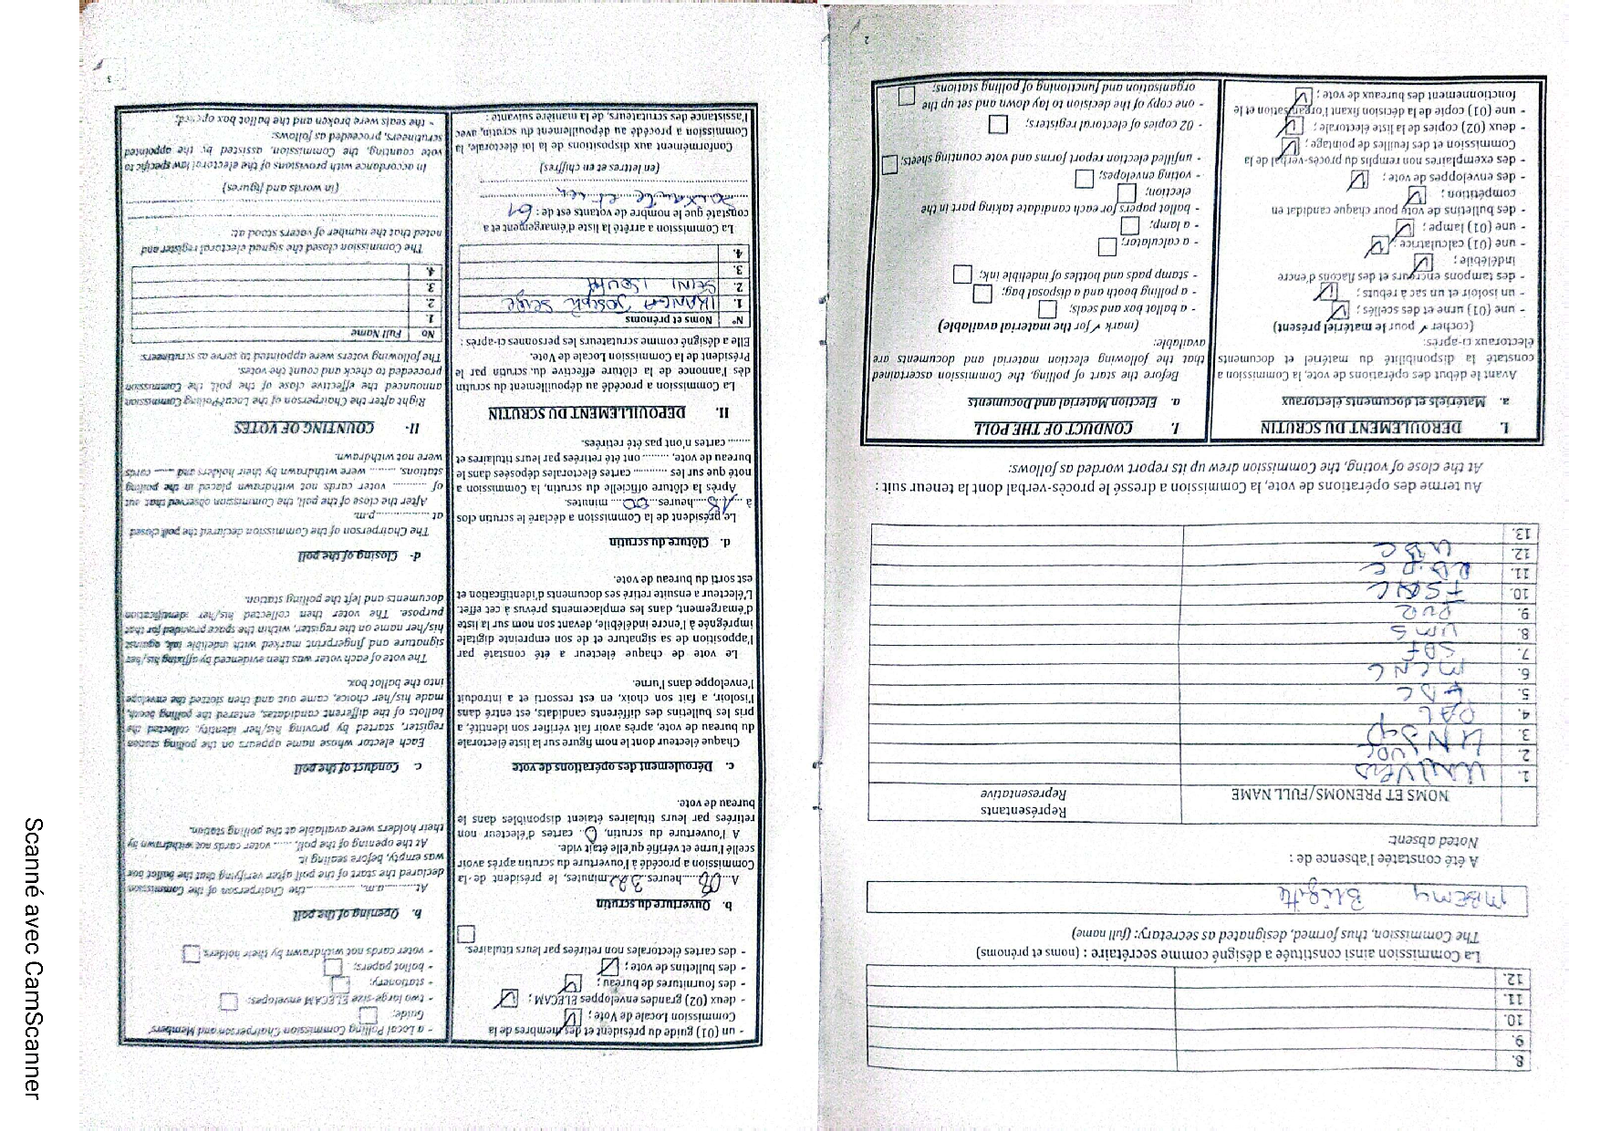 8.
9.
10.
11.
12.
La Commission ainsi constituée a désigné comme secrétaire : (noms et prénoms)
The Commission, thus formed, designated as secretary: (full name)
MBEMY Brigitte
A été constatée l'absence de :
Noted absent:
NOMS ET PRENOMS/FULL NAME
Représentants
Representative
1. UNIVERS
2.
3.
4. PAL
5.
6. MCNC
7. SDF
8. UMS
9. PUR
10.
11. RDPC
12. UBC
13.
Au terme des opérations de vote, la Commission a dressé le procès-verbal dont la teneur suit :
At the close of voting, the Commission drew up its report worded as follows:
I. DEROULEMENT DU SCRUTIN
a. Matériels et documents électoraux
Avant le début des opérations de vote, la Commission a
constaté la disponibilité du matériel et documents
électoraux ci-après:
(cocher ✓ pour le matériel présent)
- une (01) urne et des scellés;
- un isoloir et un sac à rebuts;
- des tampons encreurs et des flacons d'encre
indélébile ;
- une (01) calculatrice;
- une (01) lampe ;
- des bulletins de vote pour chaque candidat en
compétition;
- des enveloppes de vote ;
- des exemplaires non remplis du procès-verbal de la
Commission et des feuilles de pointage;
- deux (02) copies de la liste électorale;
- une (01) copie de la décision fixant l'organisation et le
fonctionnement des bureaux de vote ;
I. CONDUCT OF THE POLL
a. Election Material and Documents
Before the start of polling, the Commission ascertained
that the following election material and documents are
available:
(mark ✓ for the material available)
- a ballot box and seals;
- a polling booth and a disposal bag;
- stamp pads and bottles of indelible ink;
- a calculator;
- a lamp;
- ballot papers for each candidate taking part in the
election;
- voting envelopes;
- unfilled election report forms and vote counting sheets;
- 02 copies of electoral registers;
- one copy of the decision to lay down and set up the
organisation and functioning of polling stations;
2
- un (01) guide du président et des membres de la
Commission Locale de Vote ;
- deux (02) grandes enveloppes ELECAM;
- des fournitures de bureau ;
- des bulletins de vote ;
- des cartes électorales non retirées par leurs titulaires.
b. Ouverture du scrutin
A 08 heures 32 minutes, le président de la
Commission a procédé à l'ouverture du scrutin après avoir
scellé l'urne et vérifié qu'elle était vide.
A l'ouverture du scrutin, 0 cartes d'électeur non
retirées par leurs titulaires étaient disponibles dans le
bureau de vote.
c. Déroulement des opérations de vote
Chaque électeur dont le nom figure sur la liste électorale
du bureau de vote, après avoir fait vérifier son identité, a
pris les bulletins des différents candidats, est entré dans
l'isoloir, a fait son choix, en est ressorti et a introduit
l'enveloppe dans l'urne.
Le vote de chaque électeur a été constaté par
l'apposition de sa signature et de son empreinte digitale
imprégnée à l'encre indélébile, devant son nom sur la liste
d'émargement, dans les emplacements prévus à cet effet.
L'électeur a ensuite retiré ses documents d'identification et
est sorti du bureau de vote.
d. Clôture du scrutin
Le président de la Commission a déclaré le scrutin clos
à 18 heures 00 minutes.
Après la clôture officielle du scrutin, la Commission a
noté que sur les ........ cartes électorales déposées dans le
bureau de vote, ........ ont été retirées par leurs titulaires et
........ cartes n'ont pas été retirées.
II. DEPOUILLEMENT DU SCRUTIN
La Commission a procédé au dépouillement du scrutin
dès l'annonce de la clôture effective du scrutin par le
Président de la Commission Locale de Vote.
Elle a désigné comme scrutateurs les personnes ci-après :
N° Noms et prénoms
1. IKANGA JOSEPH SERGE
2. SEINI
3.
4.
La Commission a arrêté la liste d'émargement et a
constaté que le nombre de votants est de : 61
soixante et un
(en lettres et en chiffres)
Conformément aux dispositions de la loi électorale, la
Commission a procédé au dépouillement du scrutin, avec
l'assistance des scrutateurs, de la manière suivante :
- a Local Polling Commission Chairperson and Members'
Guide;
- two large-size ELECAM envelopes;
- stationery;
- ballot papers;
- voter cards not withdrawn by their holders;
b. Opening of the poll
At............a.m. ............the Chairperson of the Commission
declared the start of the poll after verifying that the ballot box
was empty, before sealing it.
At the opening of the poll, ...... voter cards not withdrawn by
their holders were available at the polling station.
c. Conduct of the poll
Each elector whose name appears on the polling station
register, started by proving his/her identity, collected the
ballots of the different candidates, entered the polling booth,
made his/her choice, came out and then slotted the envelope
into the ballot box.
The vote of each voter was then evidenced by affixing his/her
signature and fingerprint marked with indelible ink, against
his/her name on the register, within the space provided for that
purpose. The voter then collected his/her identification
documents and left the polling station.
d- Closing of the poll
The Chairperson of the Commission declared the poll closed
at ..................p.m.
After the close of the poll, the Commission observed that out
of ........ voter cards not withdrawn placed in the polling
stations, ........ were withdrawn by their holders and ...... cards
were not withdrawn.
II- COUNTING OF VOTES
Right after the Chairperson of the Local Polling Commission
announced the effective close of the poll, the Commission
proceeded to check and count the votes.
The following voters were appointed to serve as scrutineers:
No Full Name
1.
2.
3.
4.
The Commission closed the signed electoral register and
noted that the number of voters stood at:
(in words and figures)
In accordance with provisions of the electoral law specific to
vote counting, the Commission, assisted by the appointed
scrutineers, proceeded as follows:
- the seals were broken and the ballot box opened;
3
Scanné avec CamScanner